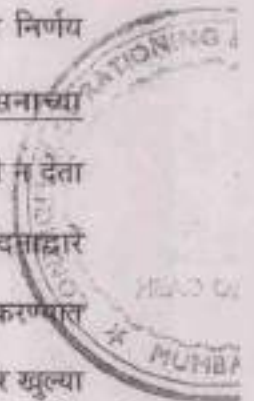 निर्णय
सनाच्या
न देता
दनाद्वारे
करण्यात
र खुल्या
RATIONING
MUMBA